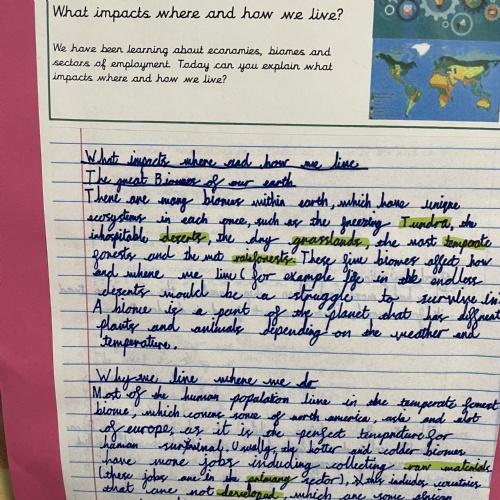 What impacts where and how we live?
We have been learning about economies, biomes and
sectors of employment. Today can you explain what
impacts where and how we live?
What impacts where and how we live
The great Biomes of our earth
There are many biomes within earth, which have unique
ecosystems in each once, such as the freezing Tundra, the
inhospitable deserts, the dry grasslands, the vast temperate
forests and the wet rainforests. These five biomes affect how
and where we live (for example life in the endless
deserts would be a struggle to survive in
A biome is a part of the planet that has different
plants and animals depending on the weather and
temperature.
Why we live where we do
Most of the human population live in the temperate forest
biome, which covers some of north america, asia and alot
of europe, as it is the perfect temperature for
human survival. Usually, the hotter and colder biomes
have more jobs including collecting raw materials
(these jobs are in the primary sector), this includes countries
that are not developed, which are some african